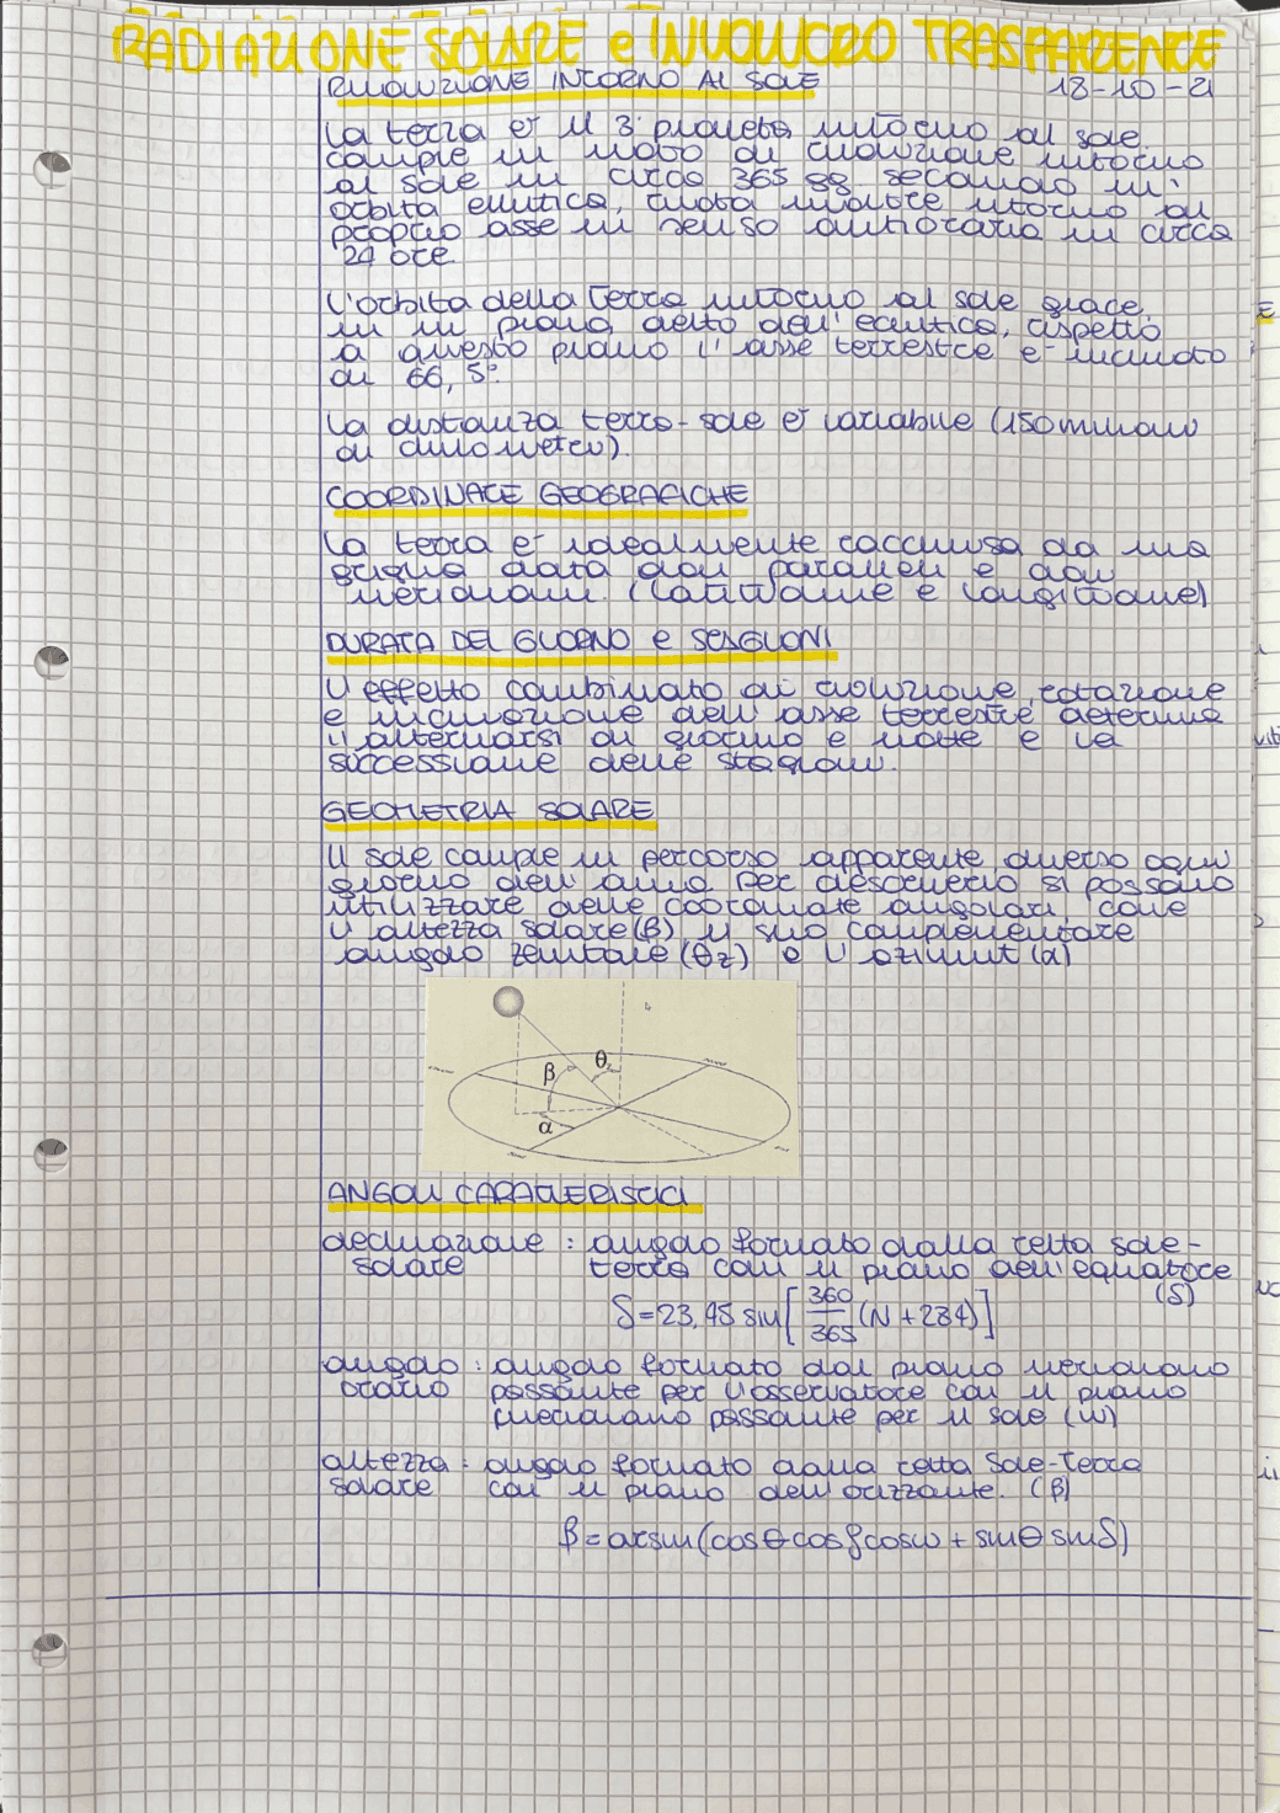 RADIAZIONE SOLARE e INVOLUCRO TRASPARENTE
RIVOLUZIONE INTORNO AL SOLE 18-10-21
la terra è il 3° pianeta intorno al sole.
compie un moto di rivoluzione intorno
al sole in circa 365 gg secondo un'
orbita ellittica, ruota inoltre intorno al
proprio asse in senso antiorario in circa
24 ore
l'orbita della Terra intorno al sole giace
in un piano detto dell'eclittica, rispetto
a questo piano l'asse terrestre è inclinato
di 66,5°.
la distanza terra-sole è variabile (150milioni
di chilometri).
COORDINATE GEOGRAFICHE
la terra è idealmente racchiusa da una
griglia data dai paralleli e dai
meridiani. (latitudine e longitudine)
DURATA DEL GIORNO e STAGIONI
l'effetto combinato di rivoluzione, rotazione
e inclinazione dell'asse terrestre determina
l'alternarsi di giorno e notte e la
successione delle stagioni.
GEOMETRIA SOLARE
Il sole compie un percorso apparente diverso ogni
giorno dell'anno. Per descriverlo si possono
utilizzare delle coordinate angolari, come
l'altezza solare (β) il suo complementare
angolo zenitale (θz) e l'azimut (α)
θz
β
α
ANGOLI CARATTERISTICI
declinazione : angolo formato dalla retta sole-
solare terra con il piano dell'equatore
(δ)
δ=23,45 sin[360/365 (N+284)]
angolo : angolo formato dal piano meridiano
orario passante per l'osservatore con il piano
meridiano passante per il sole (w)
altezza : angolo formato dalla retta Sole-Terra
solare con il piano dell'orizzonte. (β)
β=arsin(cosθcosδcosw + sinθ sinδ)